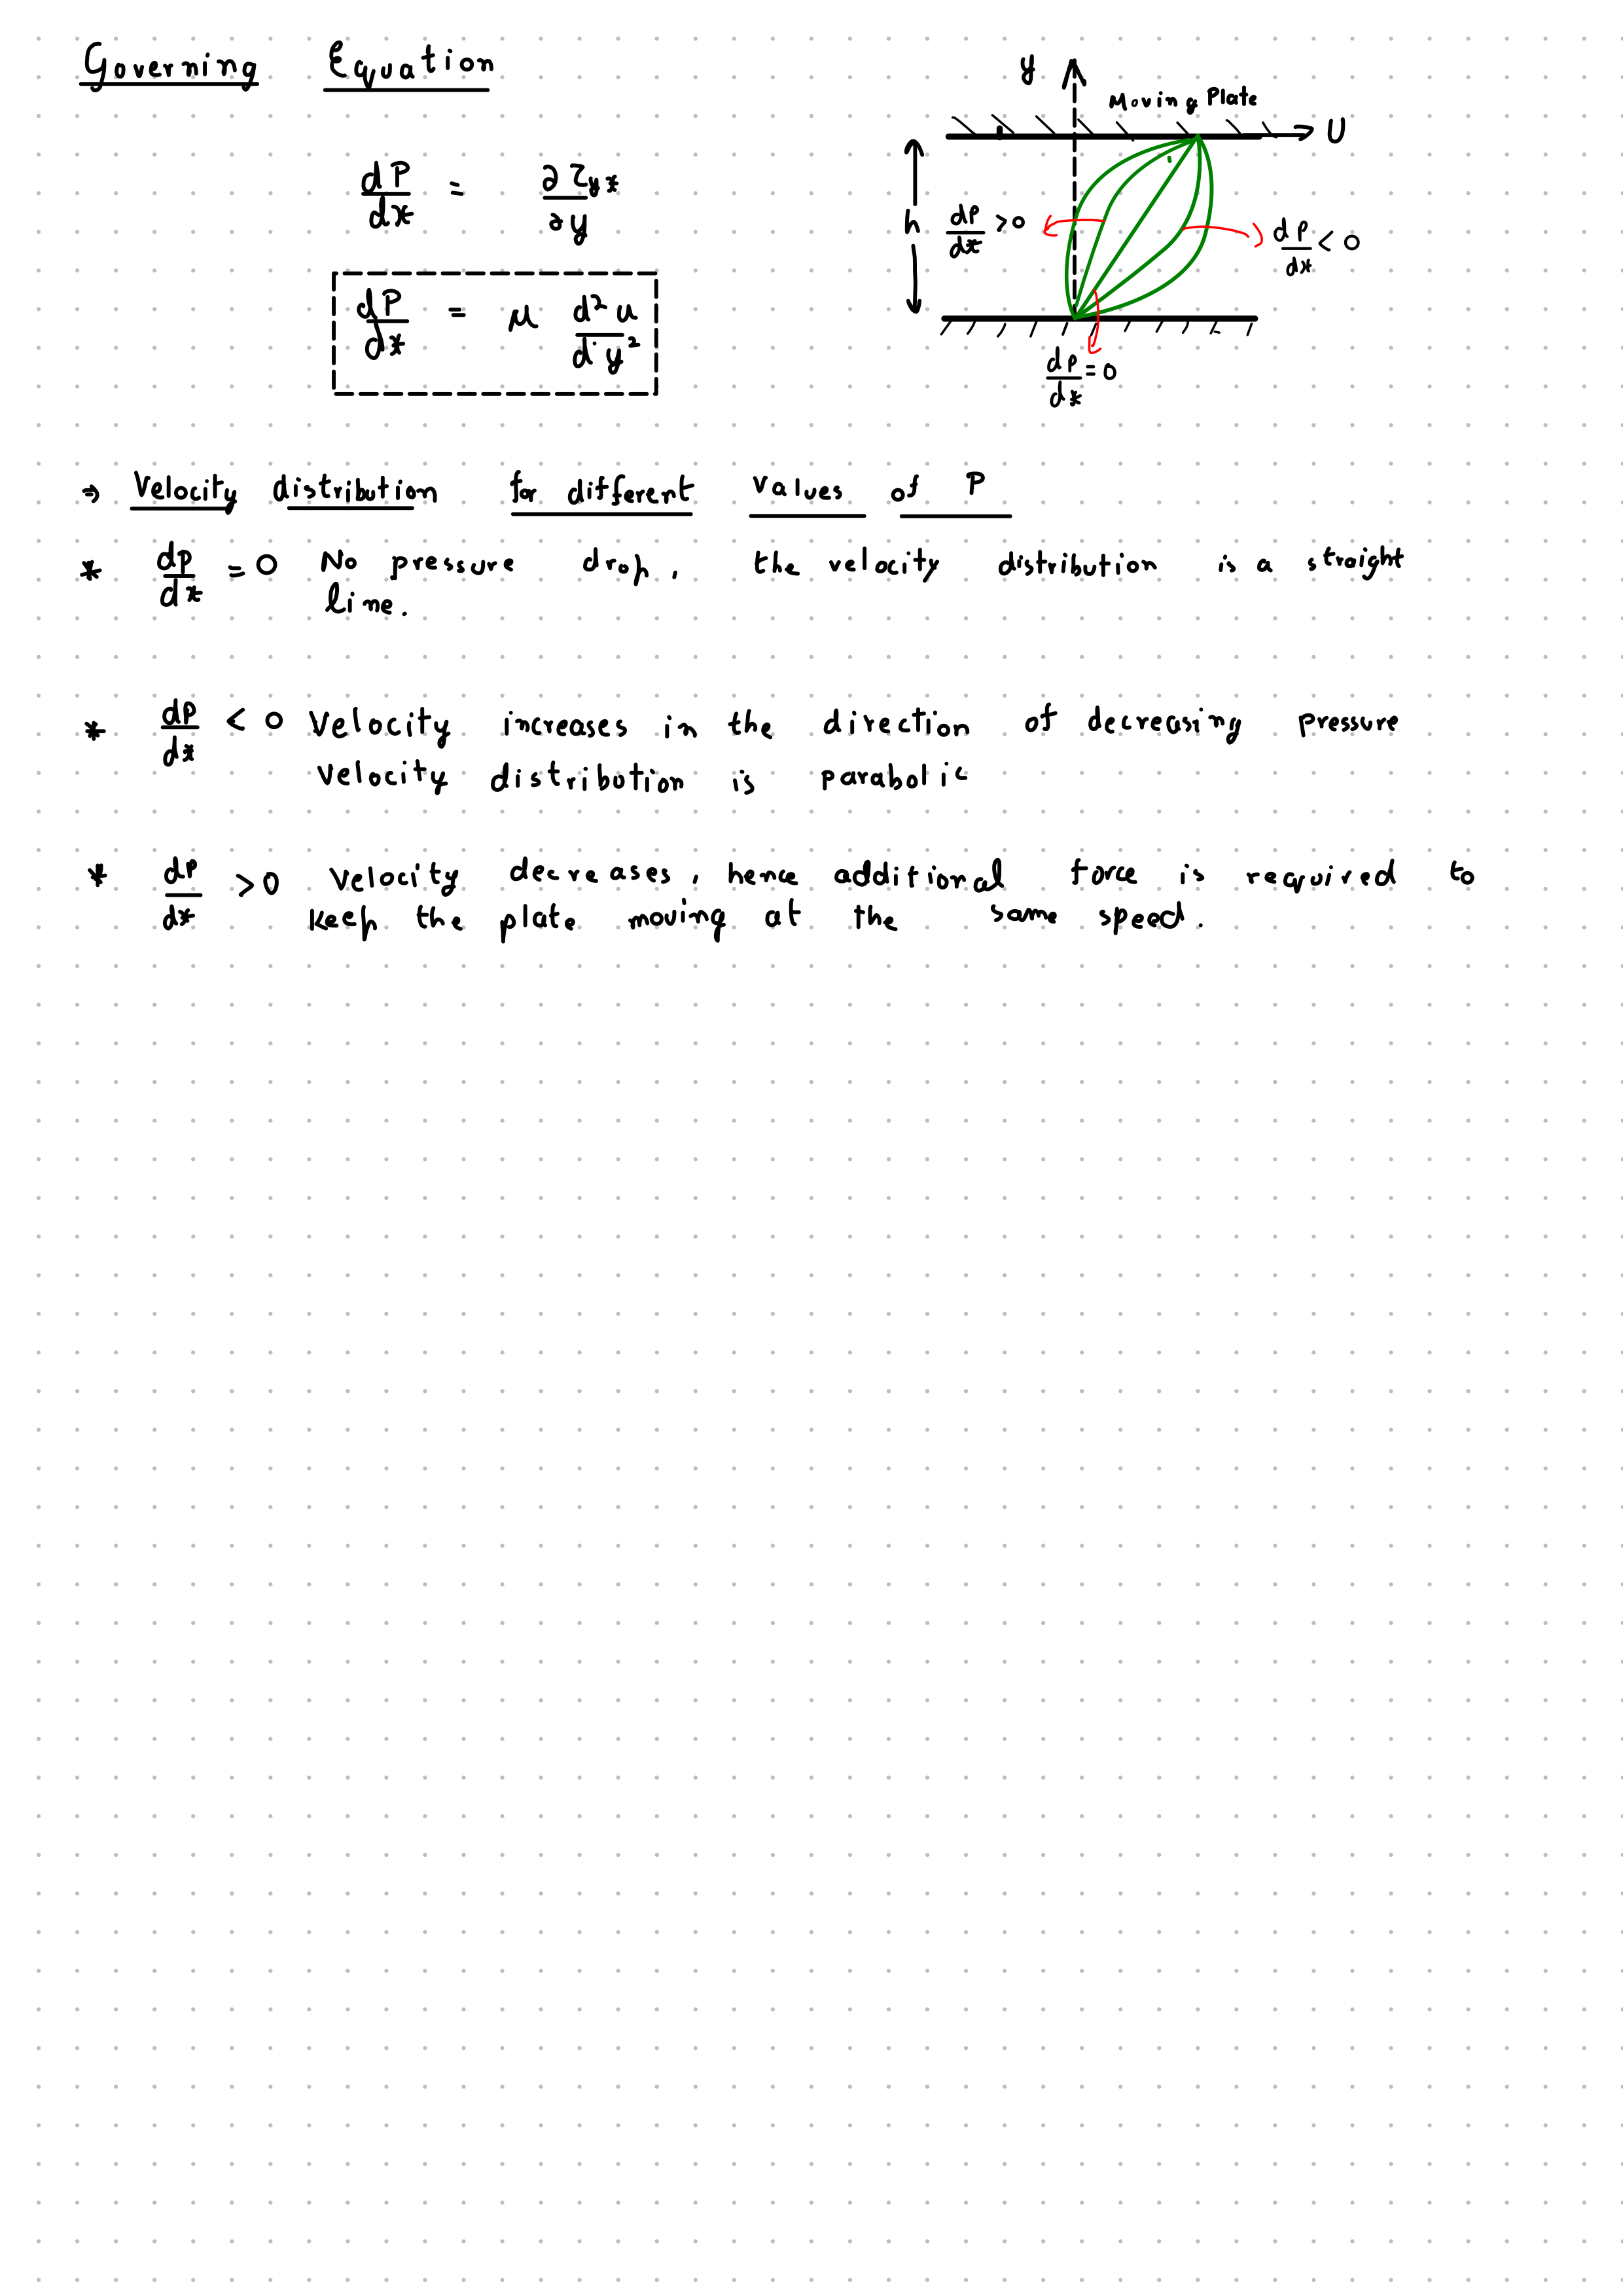 Governing Equation
dP/dx = ∂τyx/∂y
dP/dx = μ d²u/dy²
y
Moving Plate
U
h
dP/dx > 0
dP/dx < 0
dP/dx = 0
⇒ Velocity distribution for different values of P
* dp/dx = 0 No pressure drop, the velocity distribution is a straight
line.
* dP/dx < 0 Velocity increases in the direction of decreasing pressure
Velocity distribution is parabolic
* dP/dx > 0 Velocity decreases, hence additional force is required to
keep the plate moving at the same speed.